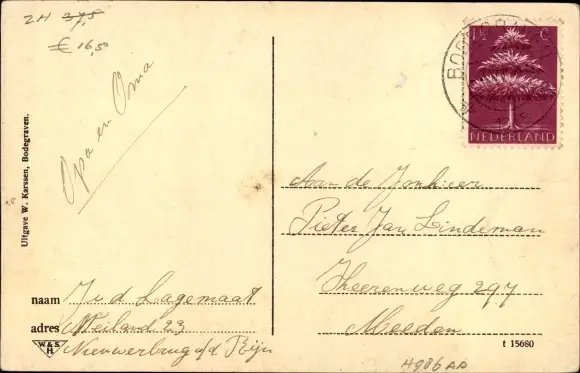 ZH 375
€ 16,50
Opa en Oma
Uitgave W. Karssen, Bodegraven.
1½ C.
NEDERLAND
Aan de Jonkheer
Pieter Jan Lindeman
Heerenweg 297
Meeden
naam J. v. d. Lagemaat
adres Weiland 23
Nieuwerbrug a/d Rijn
W&S
H
t 15680
4986 AA